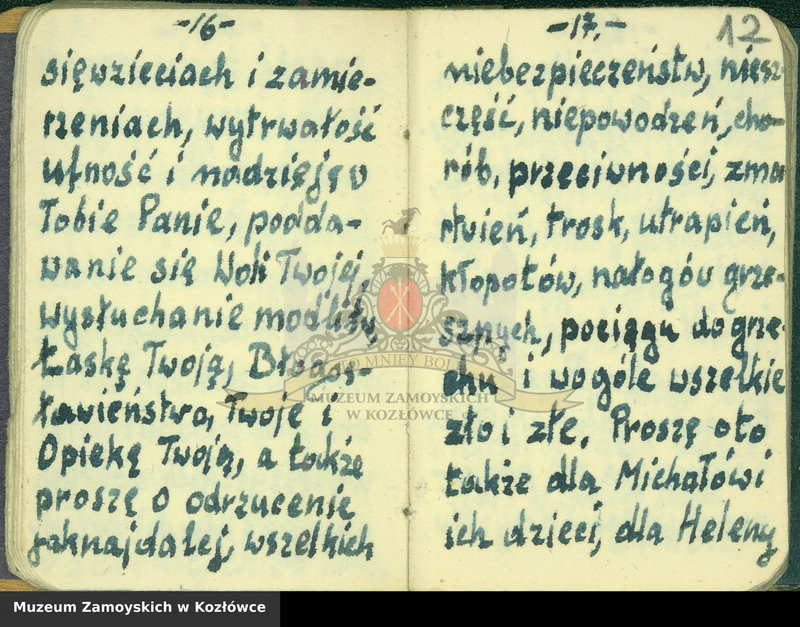 -16-
sięwzięciach i zamie-
rzeniach, wytrwałość
ufność i nadzieję w
Tobie Panie, podda-
wanie się Woli Twojej,
wysłuchanie modlitw,
Łaskę Twoją, Błogos-
ławieństwo Twoje i
Opiekę Twoją, a także
proszę o odrzucenie
jaknajdalej, wszelkich
-17.-
12
niebezpieczeństw, niesz
część, niepowodzeń, cho-
rób, przeciwności, zma
rtwień, trosk, utrapień,
kłopotów, nałogów grze-
sznych, pociągu do grze-
chu i wogóle wszelkie
zło i złe. Proszę oto
także dla Michałów i
ich dzieci, dla Heleny
MUZEUM ZAMOYSKICH
W KOZŁÓWCE
Muzeum Zamoyskich w Kozłówce